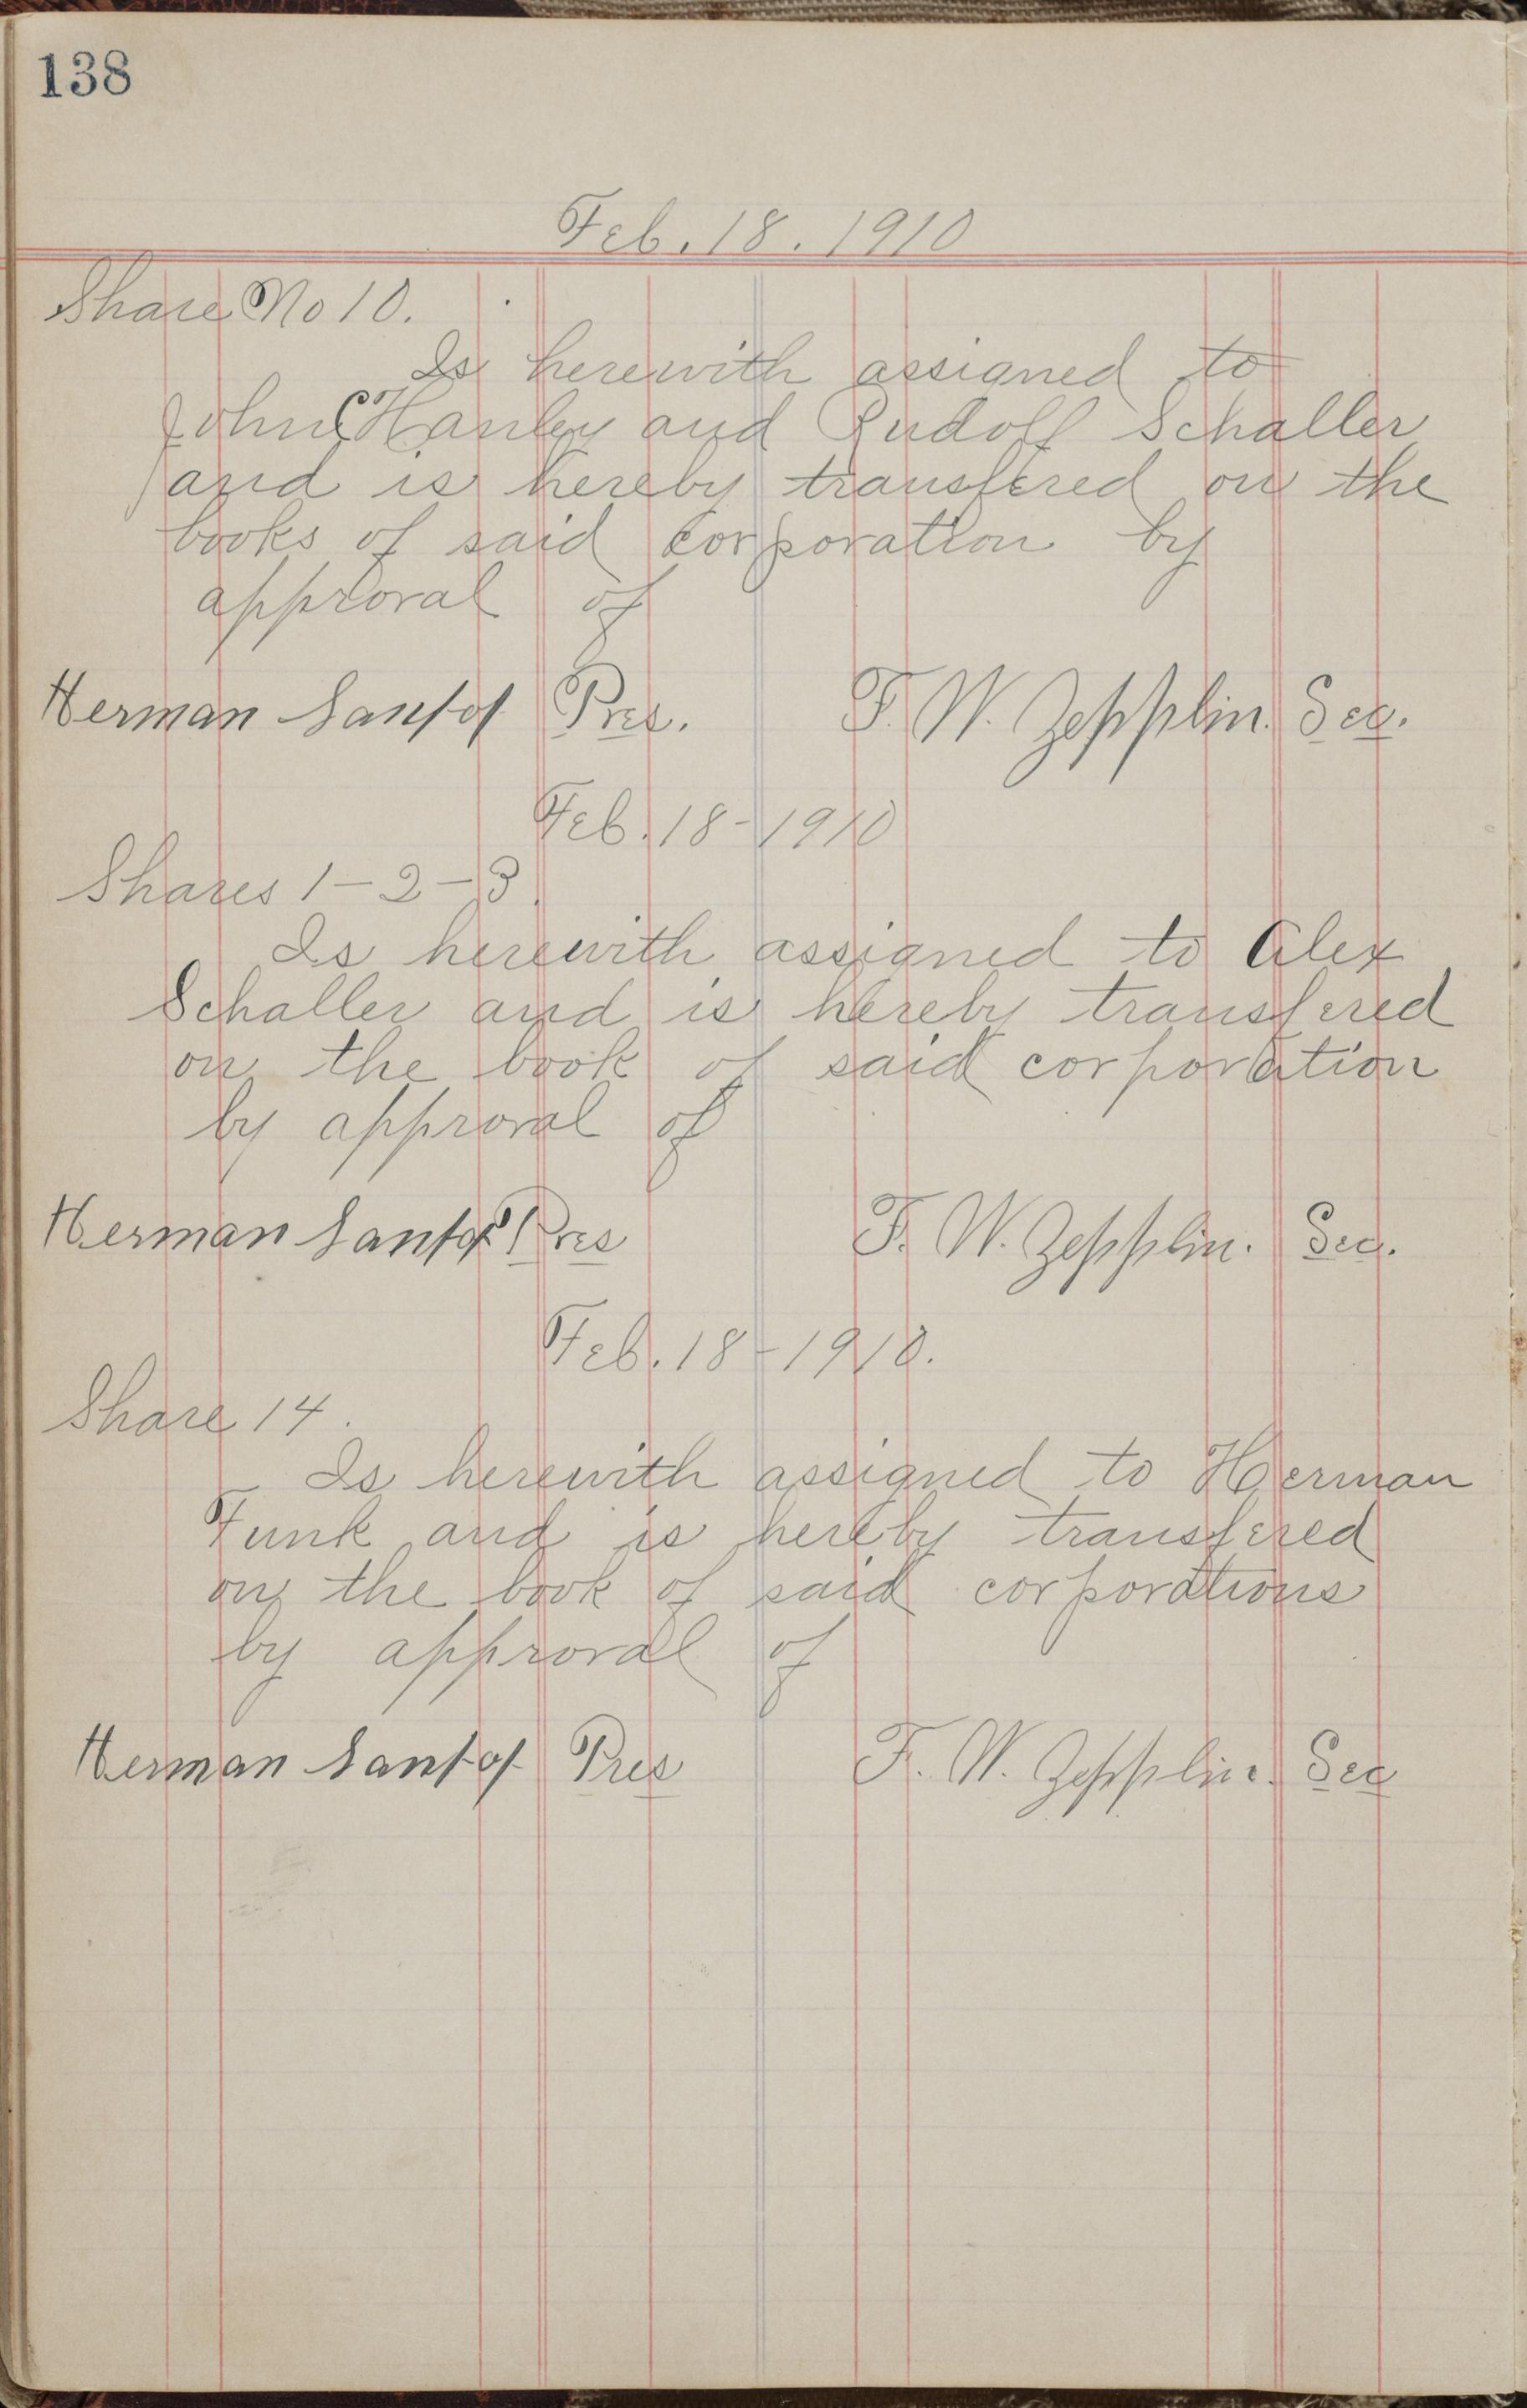 138
Feb. 18. 1910
Share No 10.
Is herewith assigned to
John C Hanley and Rudolf Schaller
and is hereby transfered on the
books of said corporation by
approval of
Herman Pres. F. W. Zepplin. Sec.
Feb. 18-1910
Shares 1-2-3.
Is herewith assigned to Alex
Schaller and is hereby transfered
on the book of said corporation
by approval of
Herman Pres F. W. Zepplin. Sec.
Feb. 18-1910.
Share 14.
Is herewith assigned to Herman
Funk and is hereby transfered
on the book of said corporations
by approval of
Herman Pres F. W. Zepplin. Sec